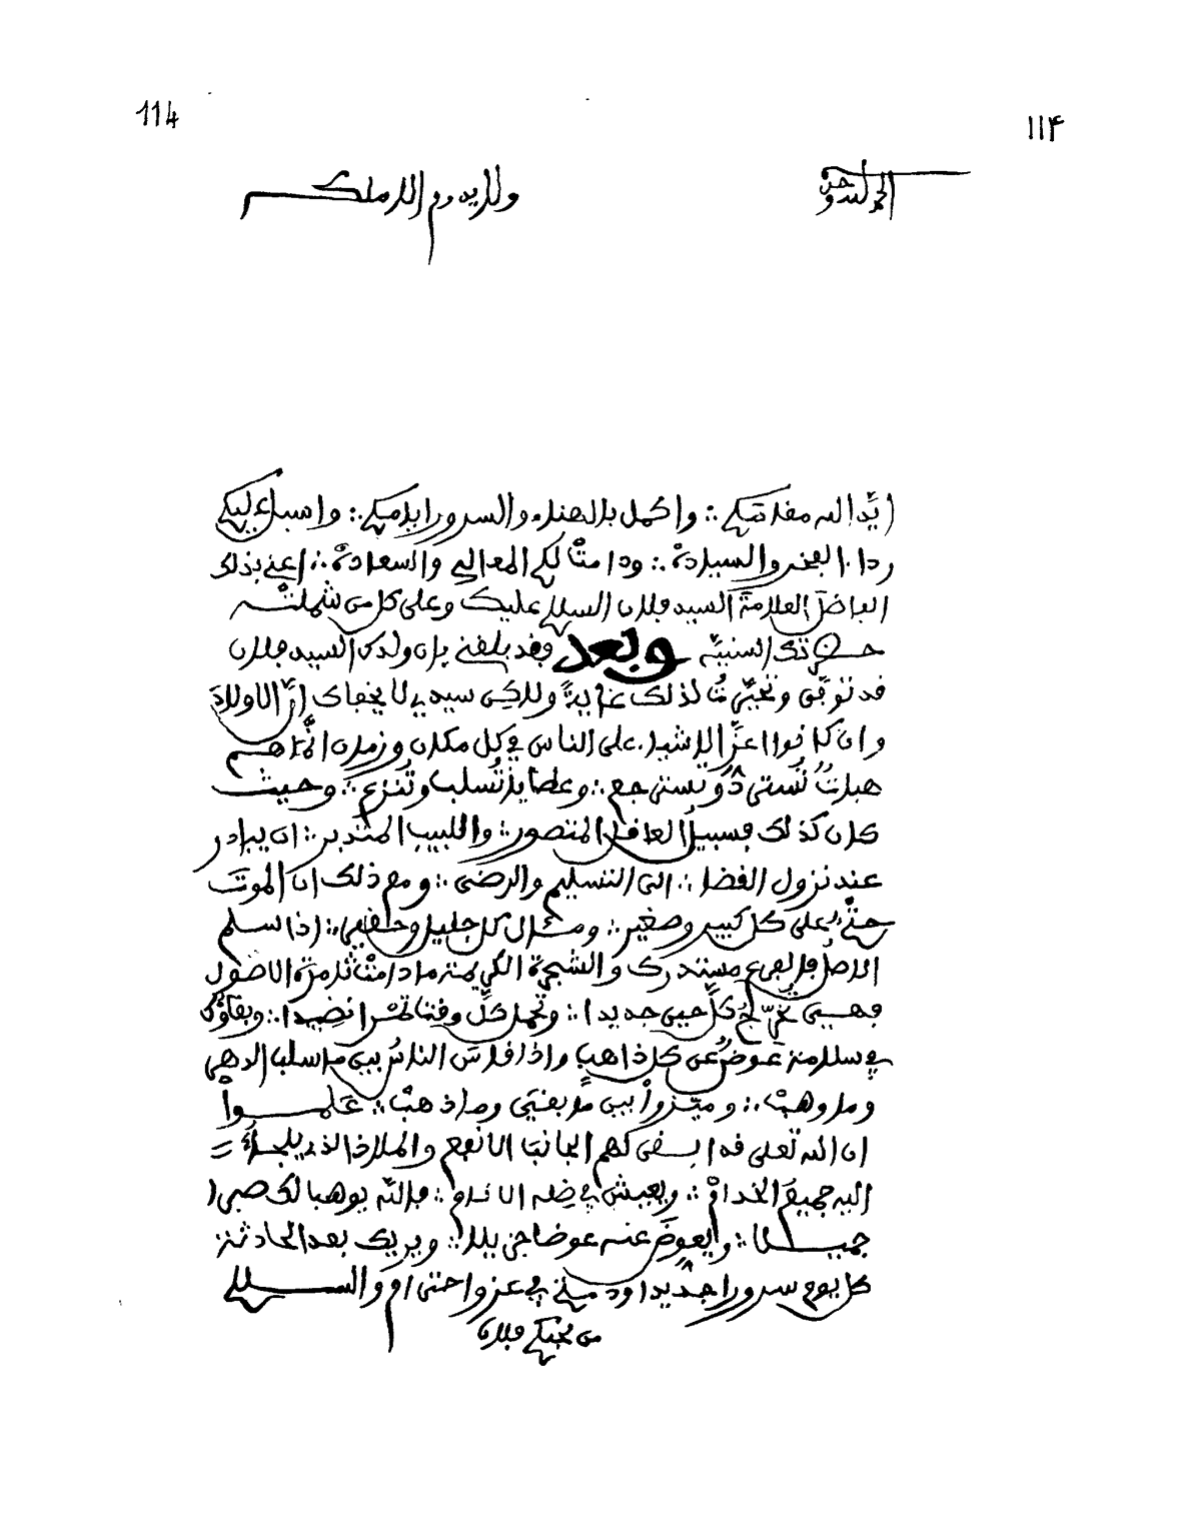 114
١١۴
الحمد لله وحده
ولا يدوم الا ملكه
ايّد الله مقامكم ∴ واكمل بالهناء والسرور ايامكم ∴ واسبل عليكم
رداء الفخر والسيادة ∴ ودامت لكم المعالي والسعادة ∴ اعني بذلك
الفاضل العلامة السيد فلان السلام عليك وعلى كل من شملته
حضرتك السنية وبعد فقد بلغني بان ولدك السيد فلان
قد توفى وتحيّرت لذلك غاية ولاكن سيدي لا يخفاك انّ الاولاد
وان كانوا اعزّ الاشياء على الناس في كل مكان وزمان انّما هم
هبات تُسترد وتسترجع ∴ وعطايا تُسلب وتُنزع ∴ وحيث
كان كذلك فسبيل العاقل المتصور ∴ واللبيب المتدبر ∴ ان يبادر
عند نزول القضا ∴ الى التسليم والرضى ∴ ومع ذلك ان الموت
حتم على كل كبير وصغير ∴ ومثال كل جليل وحقير ∴ اذا سلم
الاصل فالفرع مستدرك والشجرة الكريمة ما دامت ثابتة الاصول
فهي تخرج كلّ حين جديدا ∴ وتحمل كلّ وقت ثمرا نضيدا ∴ وبقاؤك
في سلامة عوضٌ عن كل ذاهب واذا قاس الناسُ بين ما سلب الدهر
وما وهب ∴ وميّزوا بين ما بقي وما ذهب ∴ علموا
ان الله تعلى قد ابقى لهم الجانب الانفع والملاذ الذي يلجأ =
اليه جميع الخدام ∴ ويعيش في ظله الانام ∴ فالله يوهب لك صبرا
جميلا ∴ ويعوض عنه عوضا جزيلا ∴ ويريك بعد الحادثة
كل يوم سرورا جديدا ودمتم في عز واحترام والسلام
من محبكم فلان